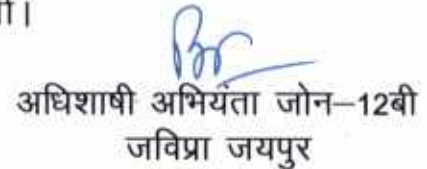 ी।
अधिशाषी अभियंता जोन–12बी
जविप्रा जयपुर